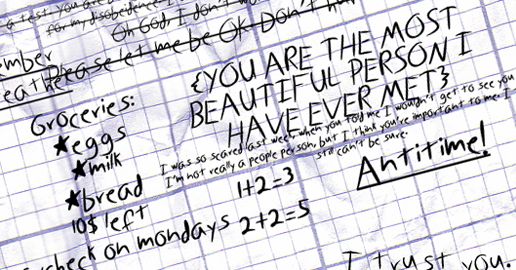 a test, you are
for my disobedience I
Oh God, I don't
Please let me be OK Don't
{YOU ARE THE MOST
BEAUTIFUL PERSON I
HAVE EVER MET}
I was so scared last week, when you told me I wouldn't get to see you
I'm not really a people person, but I think you're important to me. I
still can't be sure.
Groceries:
★eggs
★milk
★bread
10$ left
check on mondays
1+2=3
2+2=5
Antitime!
I trust you.